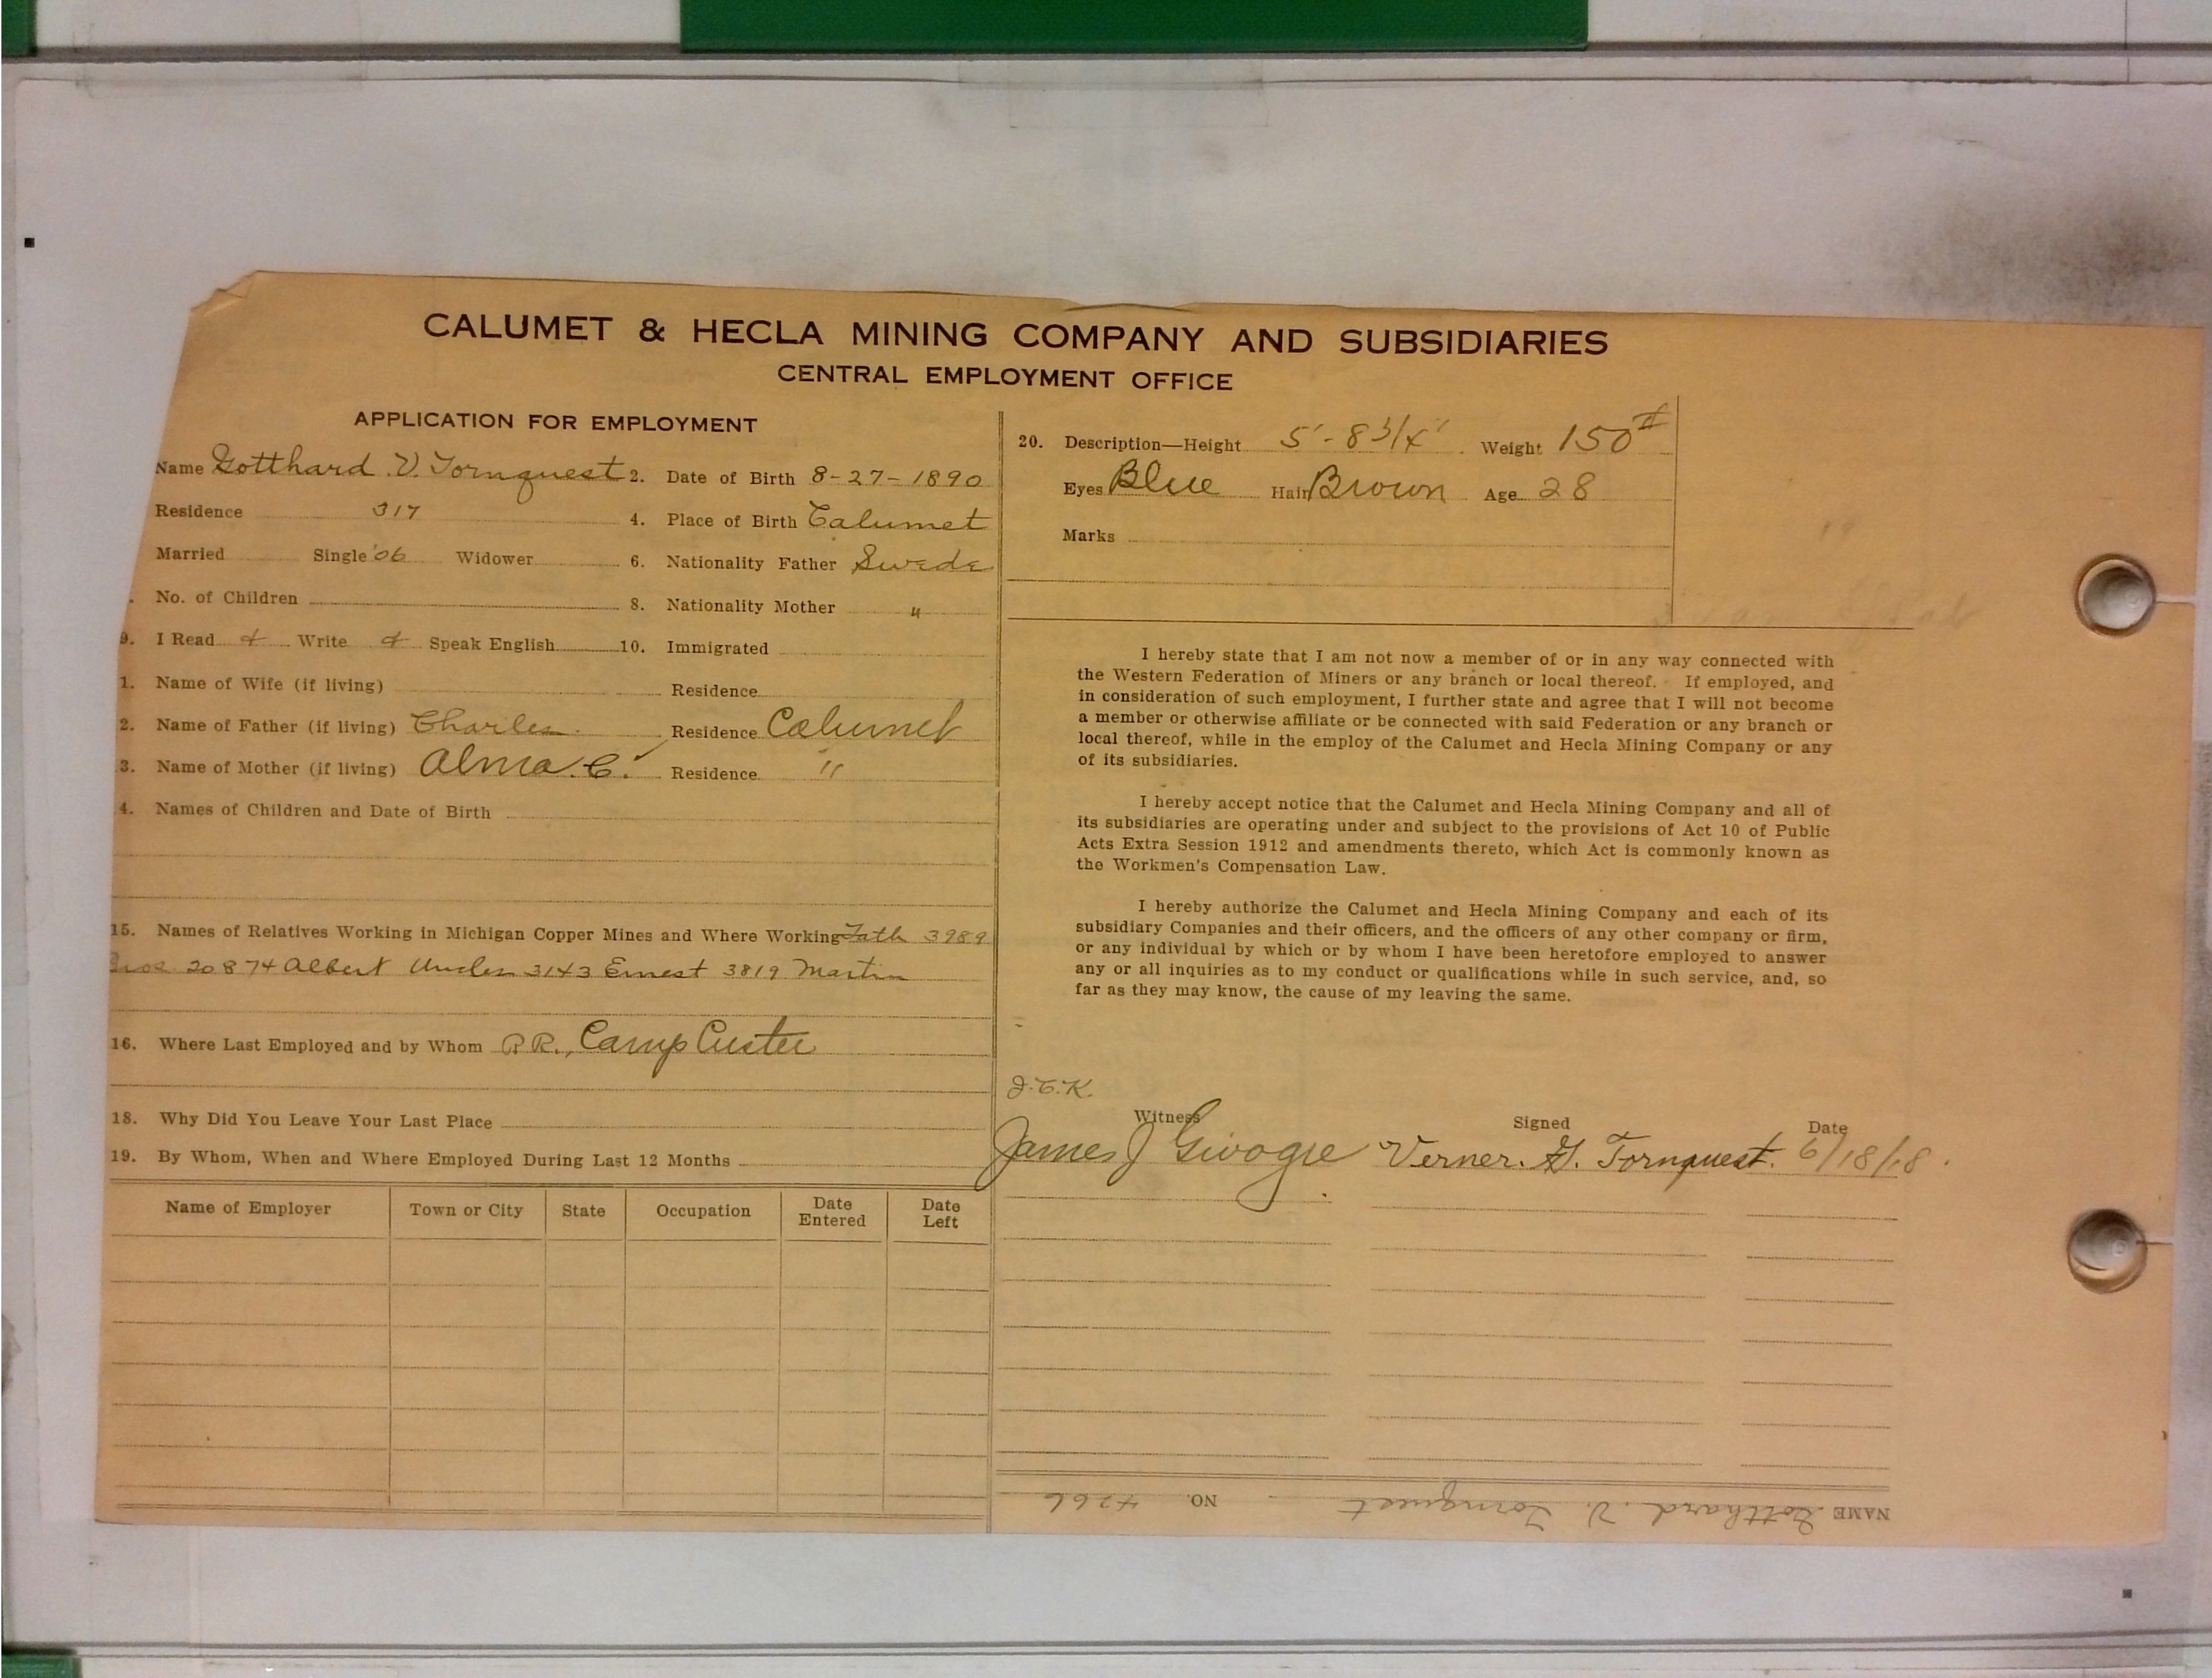 CALUMET & HECLA MINING COMPANY AND SUBSIDIARIES
CENTRAL EMPLOYMENT OFFICE
APPLICATION FOR EMPLOYMENT
Name Gotthard V. Tornquest 2. Date of Birth 8-27-1890
Residence 317 4. Place of Birth Calumet
Married Single '06 Widower 6. Nationality Father Swede
No. of Children 8. Nationality Mother "
9. I Read Write Speak English 10. Immigrated
1. Name of Wife (if living) Residence
2. Name of Father (if living) Charles Residence Calumet
3. Name of Mother (if living) Alma. C. Residence "
4. Names of Children and Date of Birth
15. Names of Relatives Working in Michigan Copper Mines and Where Working Fath 3989
Bros 20874 Albert Uncles 3143 Ernest 3819 Martin
16. Where Last Employed and by Whom Camp Custer
18. Why Did You Leave Your Last Place
19. By Whom, When and Where Employed During Last 12 Months
Name of Employer Town or City State Occupation Date Entered Date Left
20. Description—Height 5'-8 3/4" Weight 150#
Eyes Blue Hair Brown Age 28
Marks
I hereby state that I am not now a member of or in any way connected with
the Western Federation of Miners or any branch or local thereof. If employed, and
in consideration of such employment, I further state and agree that I will not become
a member or otherwise affiliate or be connected with said Federation or any branch or
local thereof, while in the employ of the Calumet and Hecla Mining Company or any
of its subsidiaries.
I hereby accept notice that the Calumet and Hecla Mining Company and all of
its subsidiaries are operating under and subject to the provisions of Act 10 of Public
Acts Extra Session 1912 and amendments thereto, which Act is commonly known as
the Workmen's Compensation Law.
I hereby authorize the Calumet and Hecla Mining Company and each of its
subsidiary Companies and their officers, and the officers of any other company or firm,
or any individual by which or by whom I have been heretofore employed to answer
any or all inquiries as to my conduct or qualifications while in such service, and, so
far as they may know, the cause of my leaving the same.
Witness Signed Date
James J Verner. G. Tornquest. 6/18/18.
NAME Gotthard V. Tornquest NO. 4266